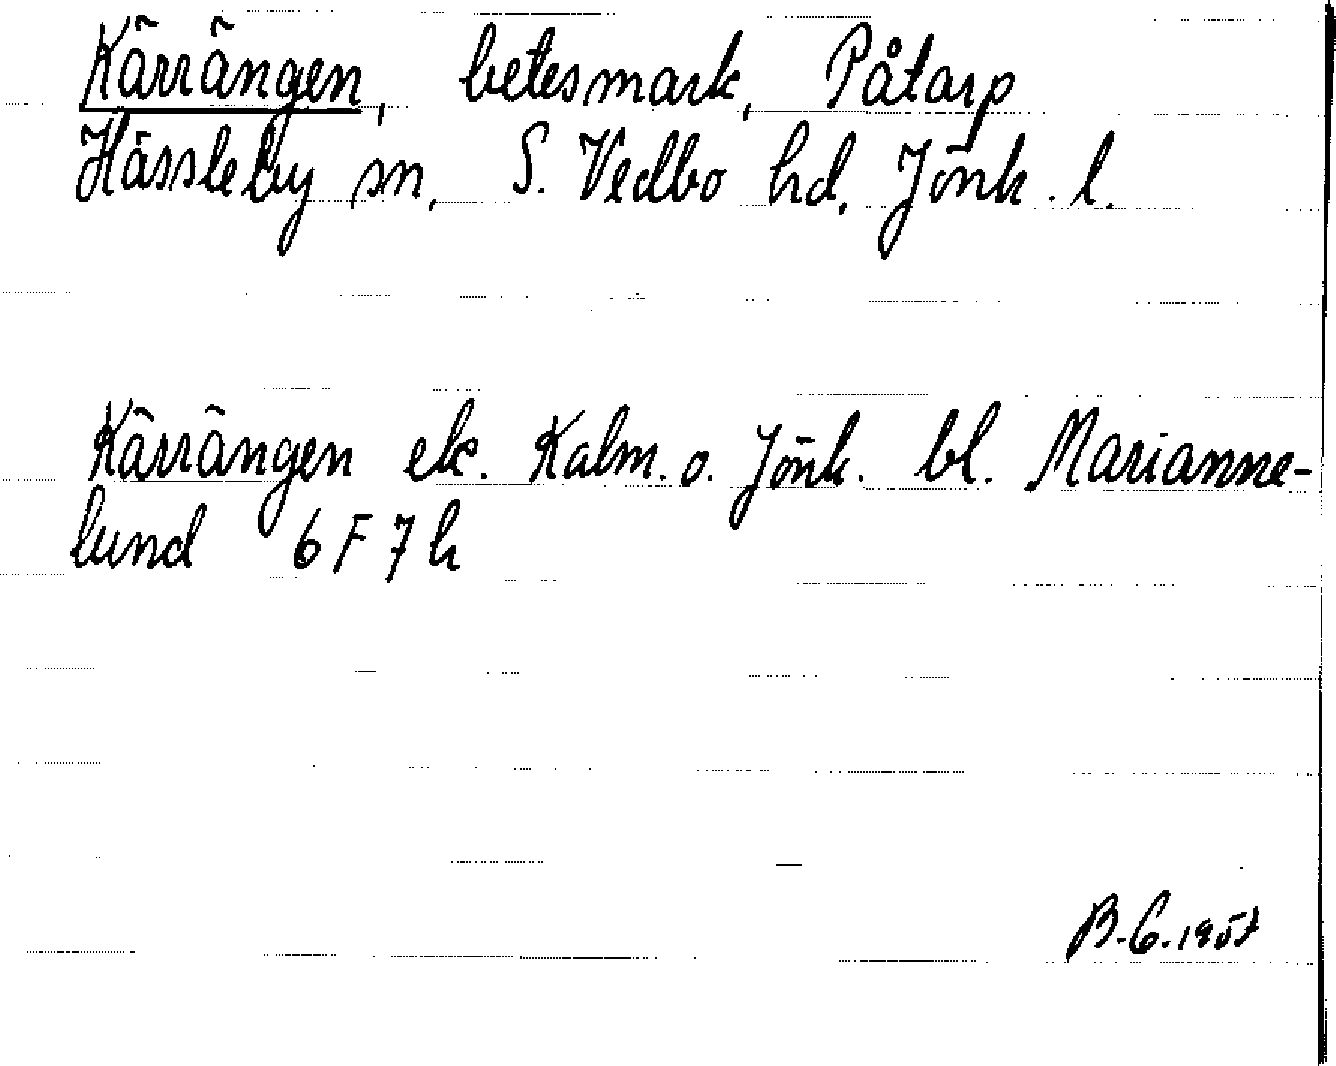 Kärrängen, betesmark, Påtarp
Hässleby sn, S. Vedbo hd, Jönk. l.
Kärrängen ek. Kalm. o. Jönk. bl. Marianne-
lund 6 F 7 h
B.G. 1957